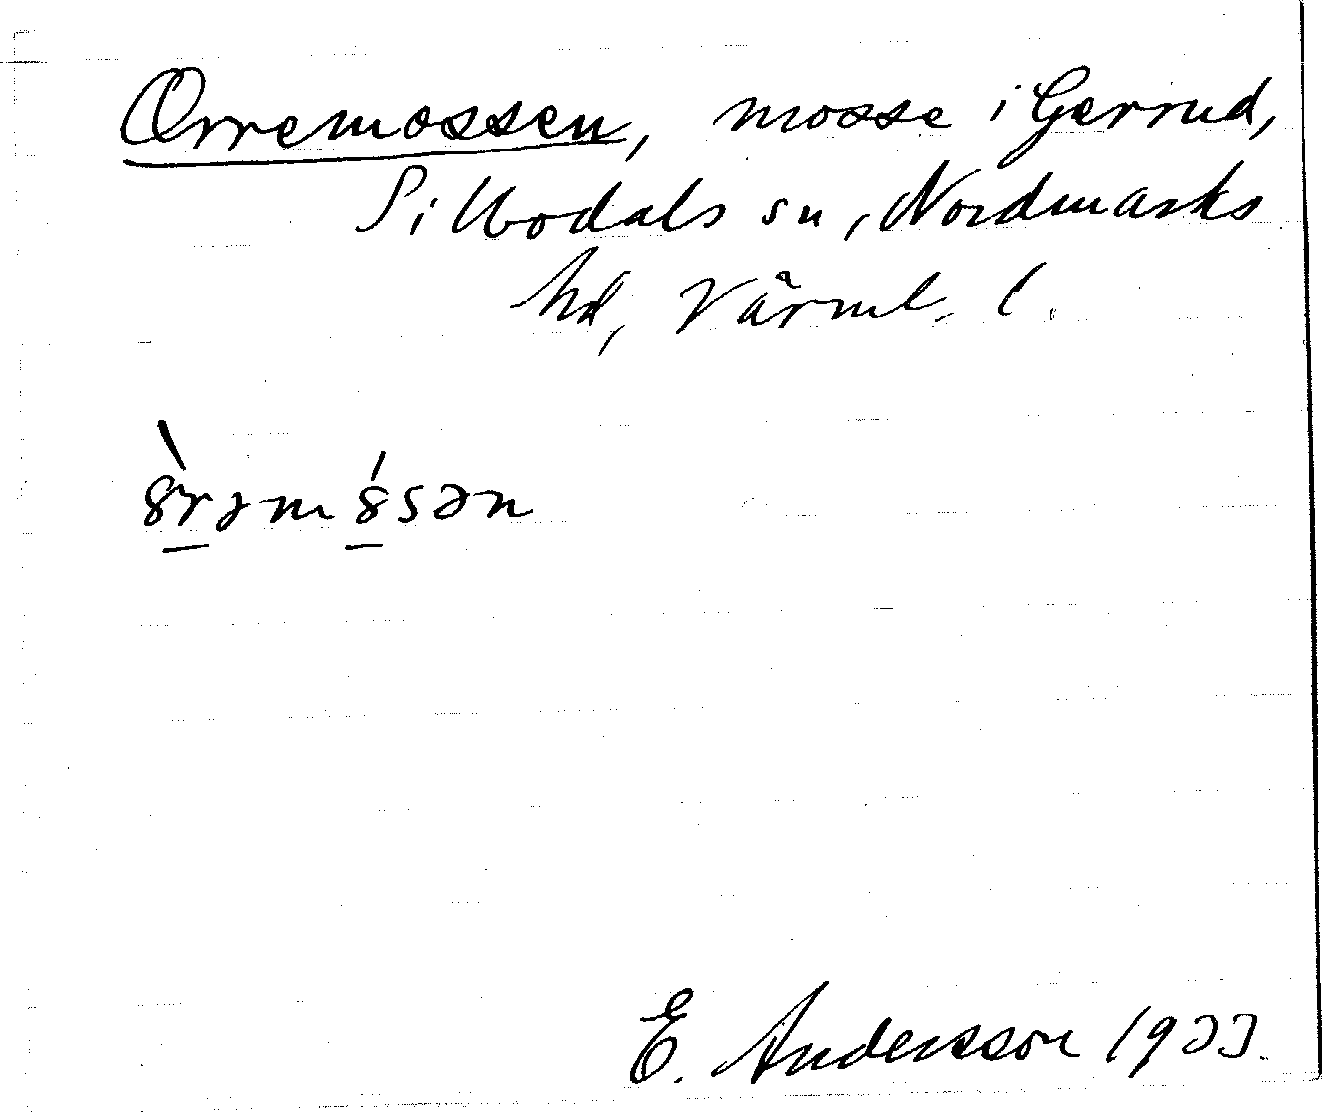 Orremossen, mosse i Gerrud,
Silbodals sn, Nordmarks
hd, Värml. l.
ȣ̀rəmȣ́sən
E. Andersson 1933.